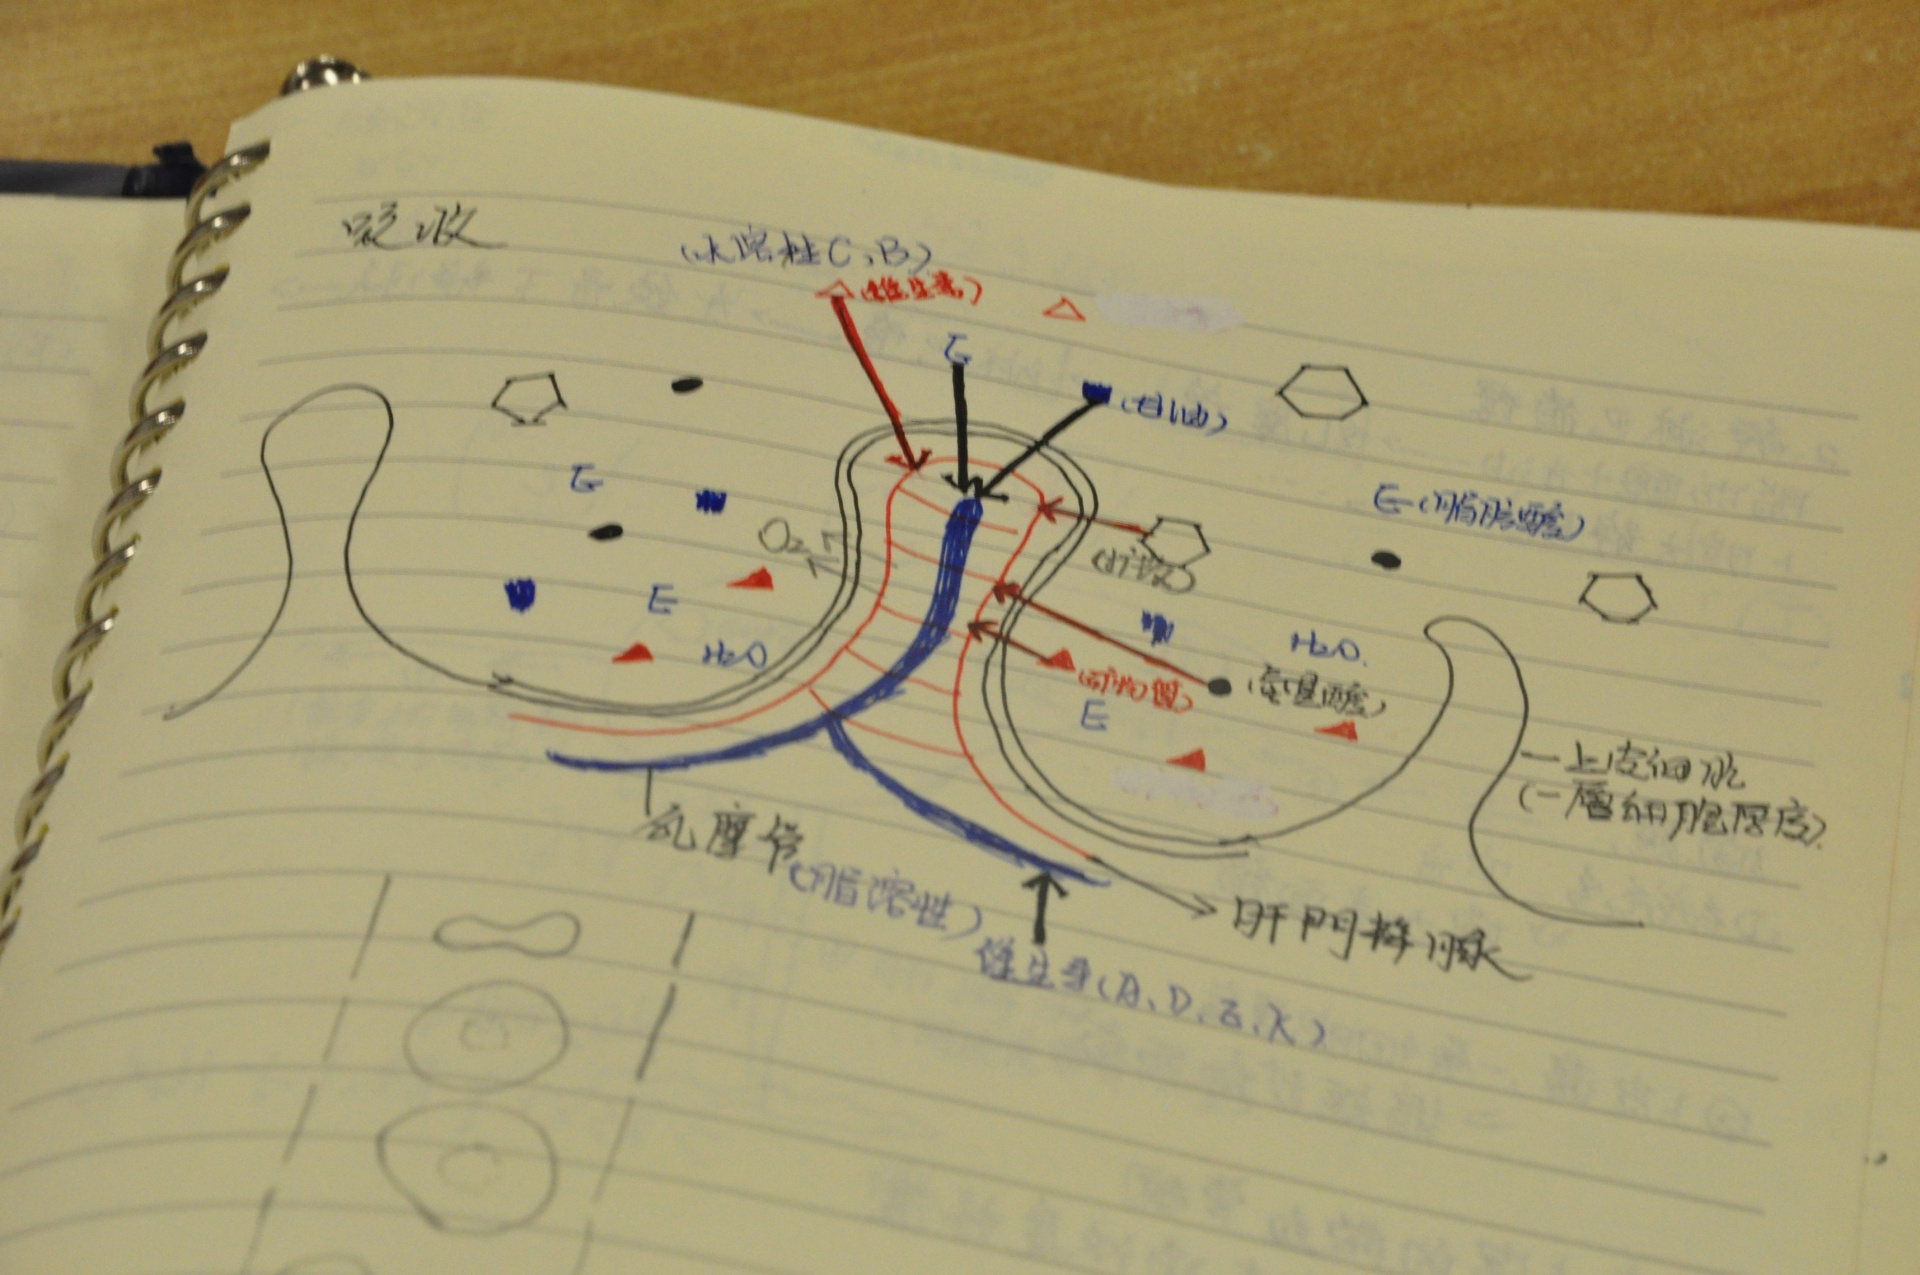 吸收
(水溶性C、B)
(維生素)
E
(甘油)
E
E(脂肪酸)
O₂
(矿物)
E
H₂O
H₂O
(矿物質)
(氨基酸)
E
上皮細胞
(一層細胞厚度)
乳糜管
(脂溶性)
肝門静脈
維生素(A、D、E、K)